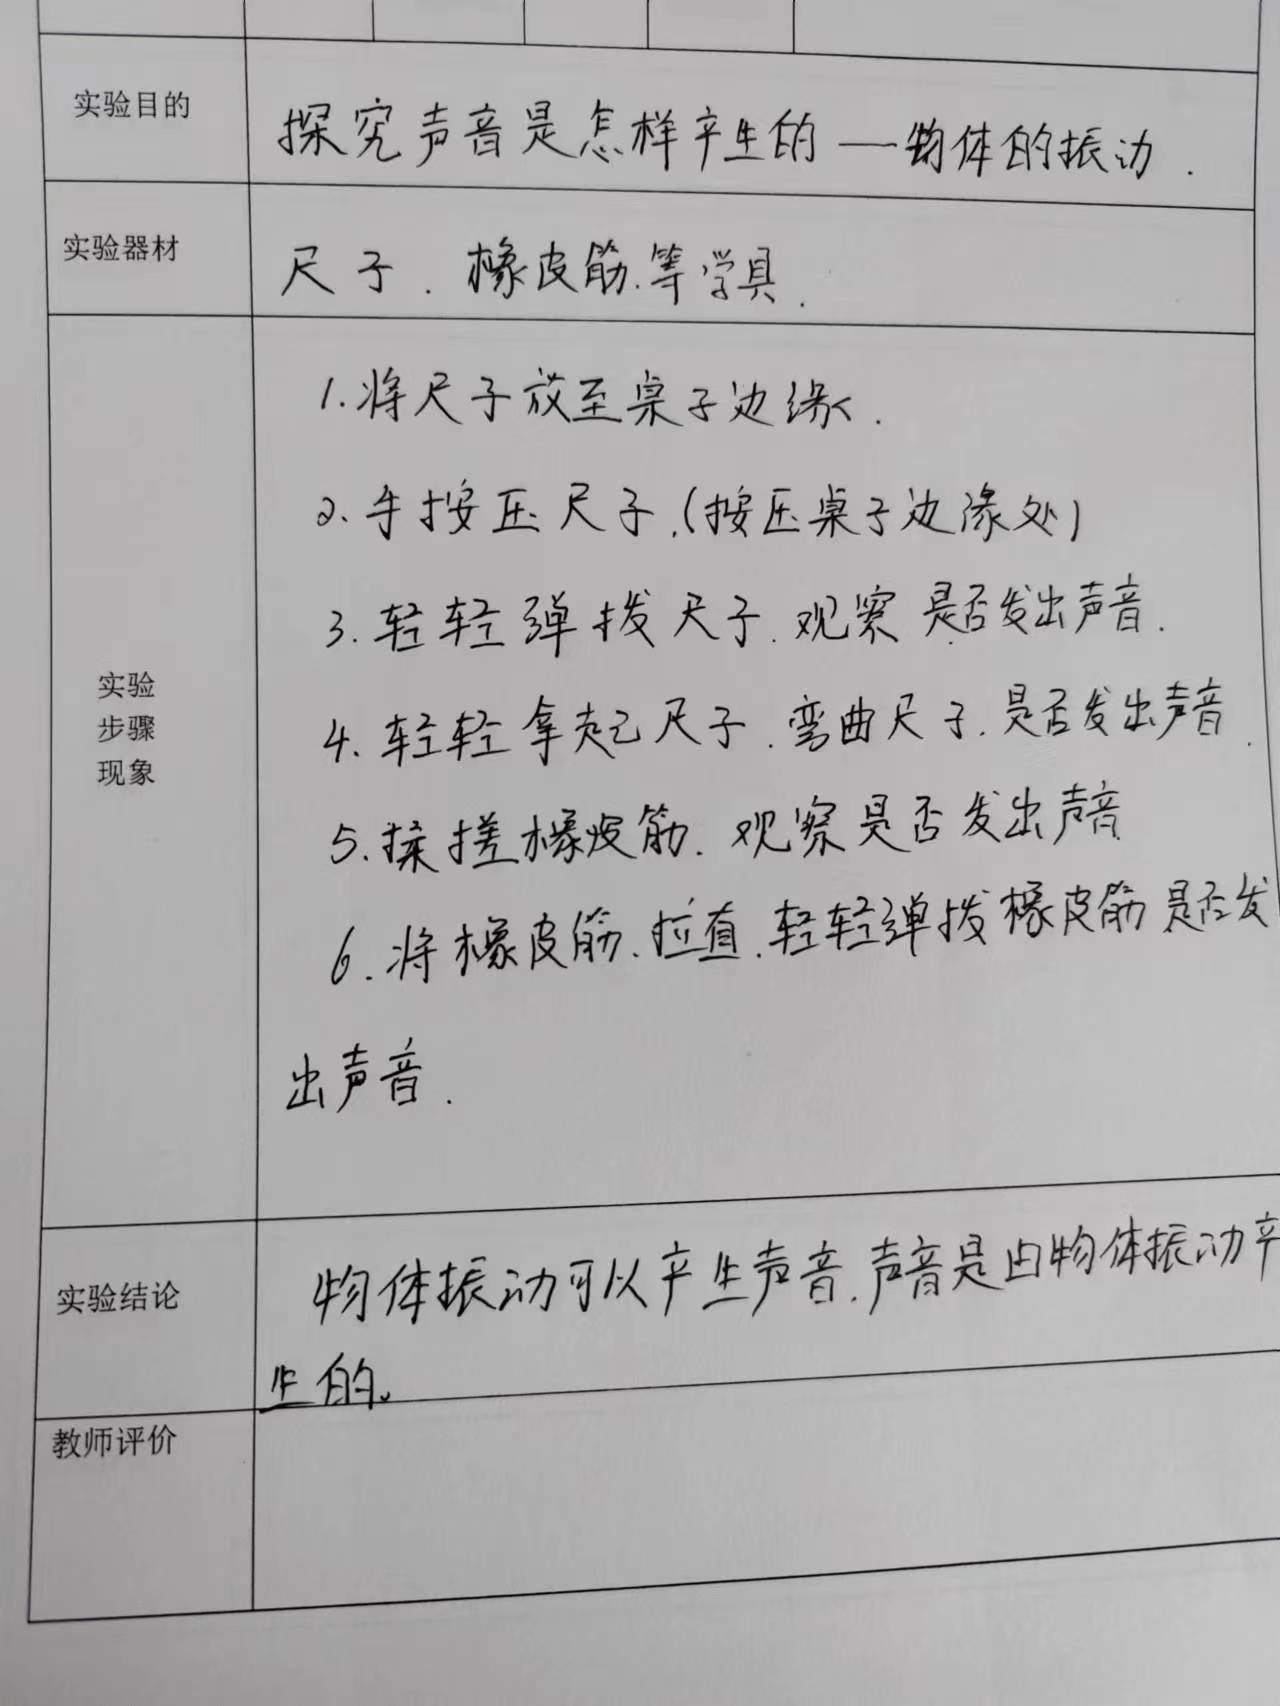 实验目的
探究声音是怎样产生的 — 物体的振动.
实验器材
尺子. 橡皮筋.等学具.
实验
步骤
现象
1.将尺子放至桌子边缘.
2.手按压尺子.(按压桌子边缘处)
3.轻轻弹拨尺子.观察是否发出声音.
4.轻轻拿起尺子.弯曲尺子.是否发出声音.
5.揉搓橡皮筋.观察是否发出声音
6.将橡皮筋.拉直.轻轻弹拨橡皮筋是否发
出声音.
实验结论
物体振动可以产生声音.声音是由物体振动产
生的。
教师评价